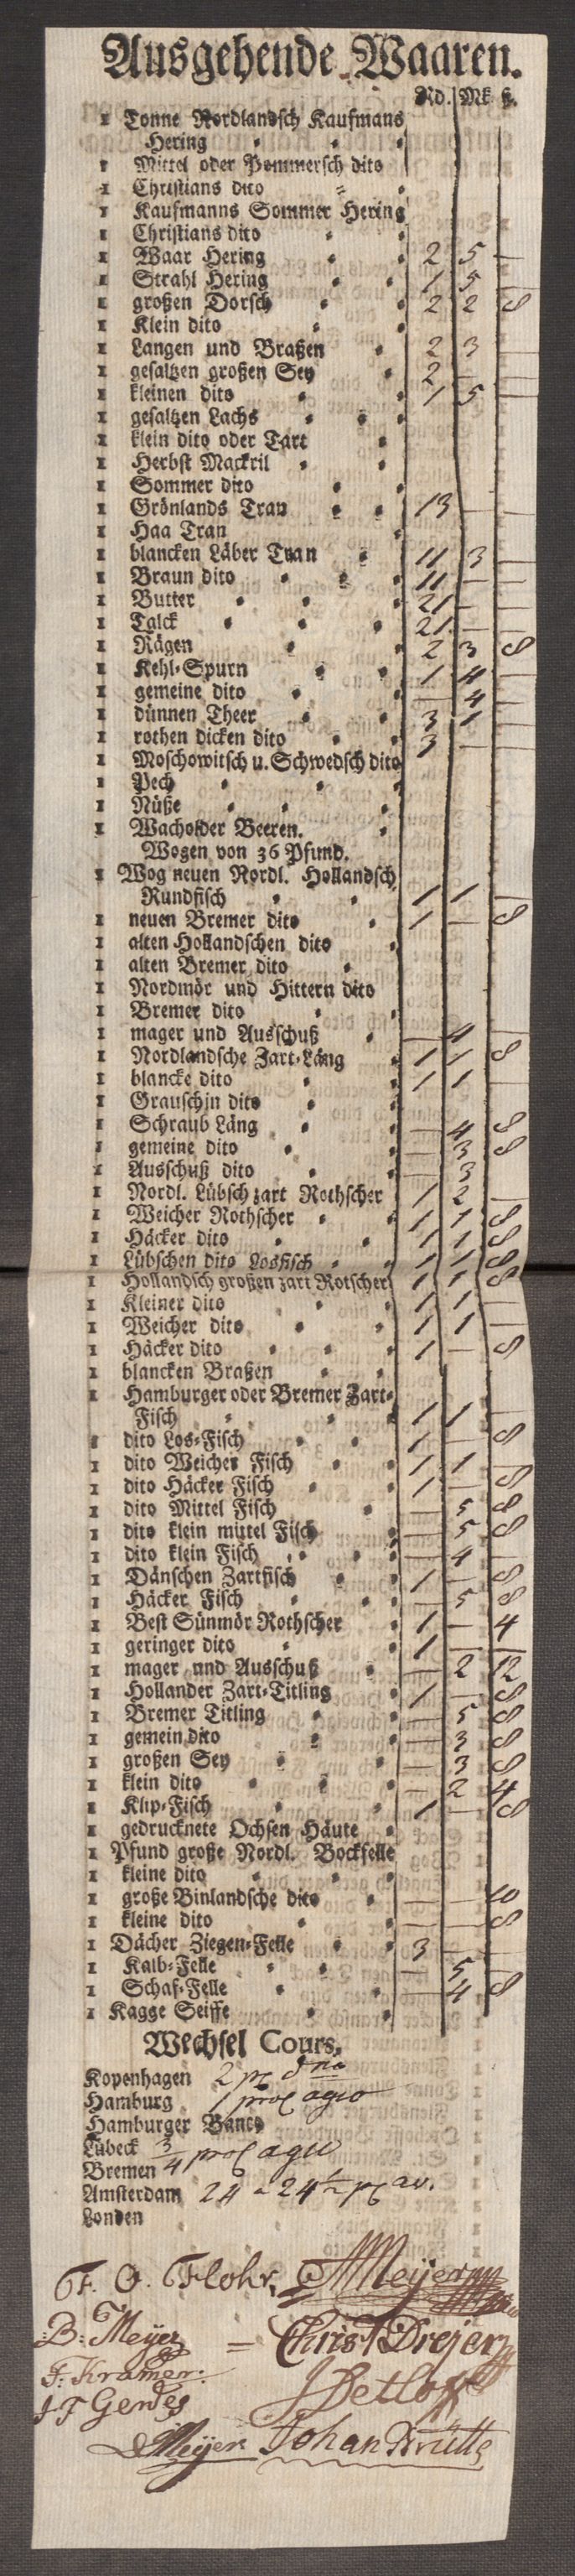 Ausgehende Waaren.
Rd. Mk ß.
1 Tonne Nordlandsch Kaufmans
Hering
1 Mittel oder Pommersch dito
1 Christians dito
1 Kaufmanns Sommer Hering
1 Christians dito
1 Waar Hering 2 5 —
1 Strahl Hering 1 5
1 großen Dorsch 2 2 8
1 Klein dito
1 Langen und Braßen 2 3
1 gesaltzen großen Sey 2 —
1 kleinen dito 1 5
1 gesaltzen Lachs
1 klein dito oder Tart
1 Herbst Mackril
1 Sommer dito
1 Grönlands Tran 13 — —
1 Haa Tran
1 blancken Läber Tran 11 3 —
1 Braun dito 11 —
1 Butter 21 — —
1 Talck 21 —
1 Rägen 2 3 8
1 Kehl-Spurn 1 4
1 gemeine dito — 4
1 dünnen Theer 3 1
1 rothen dicken dito 3 —
1 Moschowitsch u. Schwedsch dito
1 Pech
1 Nüße
1 Wacholder Beeren.
Wogen von 36 Pfund.
1 Wog neuen Nordl. Hollandsch
Rundfisch 1 1
1 neuen Bremer dito 1 — 8
1 alten Hollandschen dito
1 alten Bremer dito
1 Nordmör und Hittern dito
1 Bremer dito
1 mager und Ausschuß — 4
1 Nordlandsche Zart-Läng 1 1 8
1 blancke dito 1 1
1 Grauschin dito
1 Schraub Läng — 4 8
1 gemeine dito — 3 8
1 Ausschuß dito — 3
1 Nordl. Lübsch zart Rothscher 1 2
1 Weicher Rothscher 1 1 8
1 Häcker dito 1 1 8
1 Lübschen dito Losfisch 1 1 8
1 Hollandsch großen zart Rotscher 1 1 8
1 Kleiner dito 1 1
1 Weicher dito 1 1
1 Häcker dito 1 — 8
1 blancken Braßen
1 Hamburger oder Bremer Zart-
Fisch 1 1
1 dito Los-Fisch 1 — 8
1 dito Weicher Fisch 1 1
1 dito Häcker Fisch 1 — 8
1 dito Mittel Fisch — 5 8
1 dito klein mittel Fisch — 5 8
1 dito klein Fisch — 4
1 Dänschen Zartfisch 1 — 8
1 Häcker Fisch — 5 8
1 Best Sünmör Rothscher 1 — 4
1 geringer dito 1 —
1 mager und Ausschuß — 2 12
1 Hollander Zart-Titling 1 — 8
1 Bremer Titling — 5 8
1 gemein dito — 3 8
1 großen Sey — 3 8
1 klein dito — 2 4
1 Klip-Fisch 1 — 8
1 gedrucknete Ochsen Häute
1 Pfund große Nordl. Bockfelle
1 kleine dito
1 große Binlandsche dito — — 10
1 kleine dito — — 8
1 Dächer Ziegen-Felle 3 —
1 Kalb-Felle — 5
1 Schaf-Felle — 4 8
1 Kagge Seiffe
Wechsel Cours.
Kopenhagen 2 pc dno
Hamburg 1 proc agio
Hamburger Banco
Lübeck
Bremen 3/4 proc agio
Amsterdam 24 a 24 1/2 pc av.
Londen
F. O. Flohr. Meijer
B: Meyer = Christ Drejer
F: Kramer: J Detlof
J F Gerdes
Meijer Johan Krütte